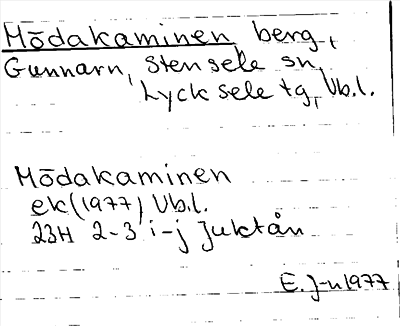 Mōdakaminen, berg,
Gunnarn, Stensele sn,
Lycksele tg, Vb.l.
Mōdakaminen
ek (1977), Vb.l.
23H 2-3 i-j Juktån
E. J-n 1977